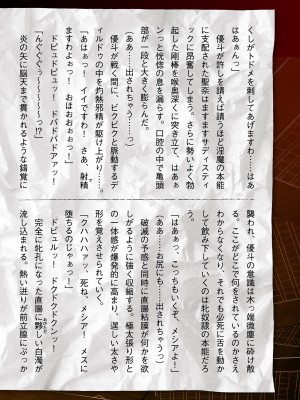 くしがトドメを刺してあげますわ……はあ
はぁぁんっ」
優斗が許しを請えば請うほど淫魔の本能
に支配された聖奈はますますサディスティ
ックに昂奮してしまう。さらに勢いよく勃
起した剛棒を喉奥深くに突き立て、はぁぁ
ンっと恍惚の息を漏らす。口腔の中で亀頭
部が一段と大きく膨らんだ。
（ああ……出されちゃうっ）
優斗が戦く間に、ビクビクと脈動するデ
ィルドゥの中を灼熱淫精が駆け上がり……。
「あはぁっ！　イイですわ！　さあ、射精
ますわよぉっ！　おほおぉぉっ！」
ドピュドピュッ！　ドバドバドアァッ！
「んぐぐぅ～～～～～っ!?」
炎の矢に脳天まで貫かれるような錯覚に
襲われ、優斗の意識は木っ端微塵に砕け散
る。ここがどこで何をされているのかさえ
わからなくなり、それでも必死に舌を動か
して飲み下していくのは牝奴隷の本能だろ
う。
「はあぁっ、こっちもいくぞ、メシアよ！」
（ああ……お尻にも……出されちゃうっ）
破滅の予感と同時に直腸粘膜が何かを欲
しがるように強く収縮する。極太張り形と
の一体感が爆発的に高まり、逞しい太さや
形を覚えさせられていく。
「クハハハァッ、死ね、メシア！　メスに
堕ちるのじゃぁっ！」
ドピュルッ！　ドクドクドクンッ！
完全に牝孔になった直腸に夥しい白濁が
おびただ
流し込まれる。熱い迸りが前立腺にぶっか